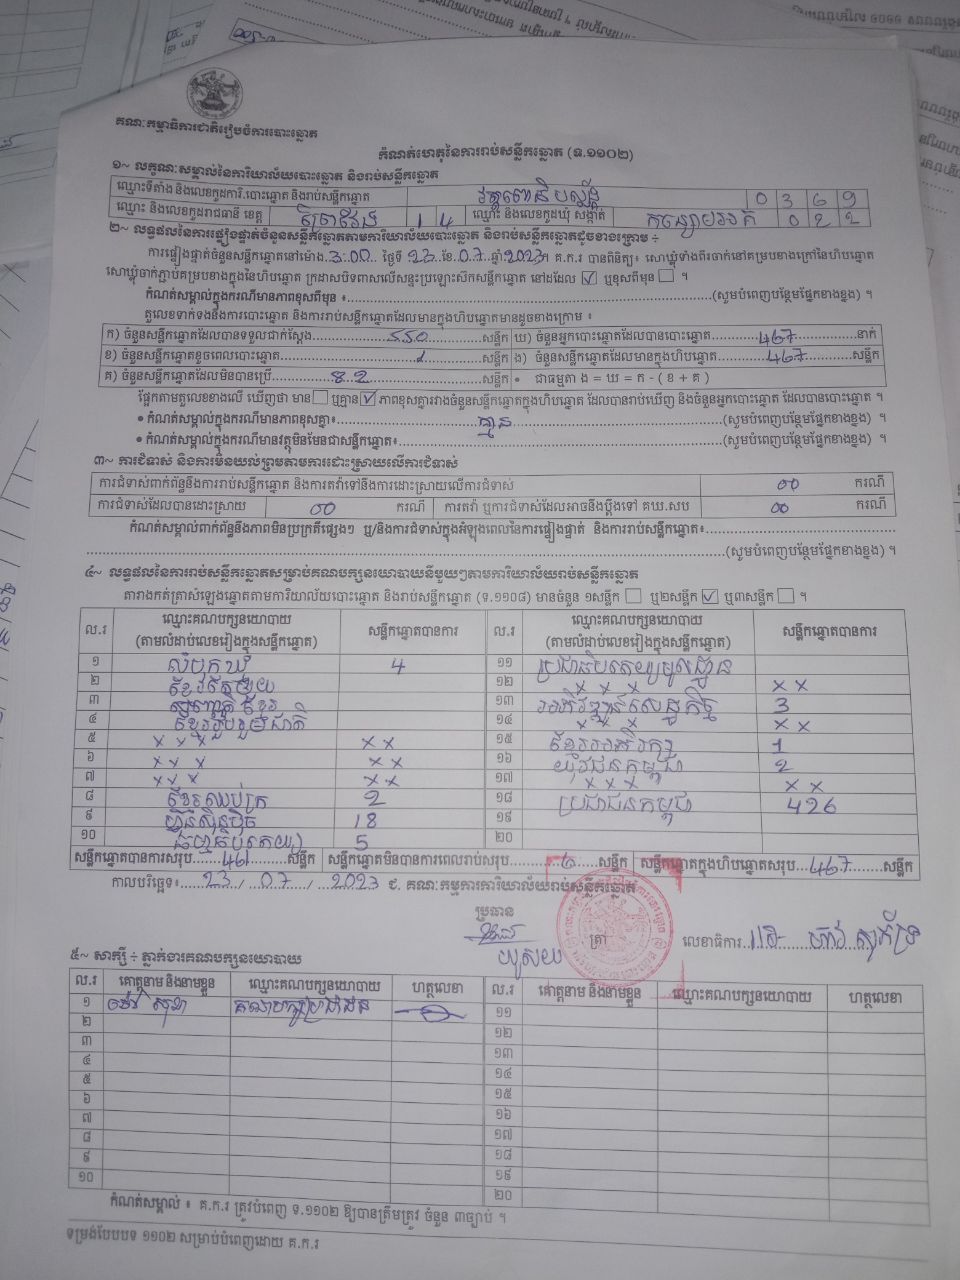 គណៈកម្មាធិការជាតិរៀបចំការបោះឆ្នោត
កំណត់ហេតុនៃការរាប់សន្លឹកឆ្នោត (ទ.១១០២)
១~ លក្ខណៈសម្គាល់នៃការិយាល័យបោះឆ្នោត និងរាប់សន្លឹកឆ្នោត
ឈ្មោះទីតាំង និងលេខកូដការិ.បោះឆ្នោត និងរាប់សន្លឹកឆ្នោត 0369
ឈ្មោះ និងលេខកូដរាជធានី ខេត្ត ព្រៃវែង 14 ឈ្មោះ និងលេខកូដឃុំ សង្កាត់ 022
២~ លទ្ធផលនៃការផ្ទៀងផ្ទាត់ចំនួនសន្លឹកឆ្នោតតាមការិយាល័យបោះឆ្នោត និងរាប់សន្លឹកឆ្នោតដូចខាងក្រោម ÷
ការផ្ទៀងផ្ទាត់ចំនួនសន្លឹកឆ្នោតនៅម៉ោង 3:00 ថ្ងៃទី 23 ខែ 07 ឆ្នាំ 2023 ។ គ.ក.រ បានពិនិត្យ៖ សោឃ្លុំទាំងពីរចាក់នៅគម្របខាងក្រៅនៃហិបឆ្នោត
សោឃ្លុំចាក់ភ្ជាប់គម្របខាងក្នុងនៃហិបឆ្នោត ក្រដាសបិទពាសលើសន្ទះប្រឡោះសឹកសន្លឹកឆ្នោត នៅដដែល ☑ ឬខុសពីមុន ☐ ។
កំណត់សម្គាល់ក្នុងករណីមានភាពខុសពីមុន ៖ (សូមបំពេញបន្ថែមផ្នែកខាងខ្នង) ។
តួលេខទាក់ទងនឹងការបោះឆ្នោត និងការរាប់សន្លឹកឆ្នោតដែលមានក្នុងហិបឆ្នោតមានដូចខាងក្រោម ៖
ក) ចំនួនសន្លឹកឆ្នោតដែលបានទទួលជាក់ស្តែង 550 សន្លឹក ឃ) ចំនួនអ្នកបោះឆ្នោតដែលបានបោះឆ្នោត 467 នាក់
ខ) ចំនួនសន្លឹកឆ្នោតខូចពេលបោះឆ្នោត 1 សន្លឹក ង) ចំនួនសន្លឹកឆ្នោតដែលមានក្នុងហិបឆ្នោត 467 សន្លឹក
គ) ចំនួនសន្លឹកឆ្នោតដែលមិនបានប្រើ 82 សន្លឹក • ជាធម្មតា ង = ឃ = ក - ( ខ + គ )
ផ្អែកតាមតួលេខខាងលើ ឃើញថា មាន ☐ ឬគ្មាន ☑ ភាពខុសគ្នារវាងចំនួនសន្លឹកឆ្នោតក្នុងហិបឆ្នោត ដែលបានរាប់ឃើញ និងចំនួនអ្នកបោះឆ្នោត ដែលបានបោះឆ្នោត ។
• កំណត់សម្គាល់ក្នុងករណីមានភាពខុសគ្នា៖ គ្មាន (សូមបំពេញបន្ថែមផ្នែកខាងខ្នង) ។
• កំណត់សម្គាល់ក្នុងករណីមានវត្ថុមិនមែនជាសន្លឹកឆ្នោត៖ (សូមបំពេញបន្ថែមផ្នែកខាងខ្នង) ។
៣~ ការជំទាស់ និងការមិនយល់ព្រមតាមការដោះស្រាយលើការជំទាស់
ការជំទាស់ពាក់ព័ន្ធនឹងការរាប់សន្លឹកឆ្នោត និងការតវ៉ាទៅនឹងការដោះស្រាយលើការជំទាស់ 00 ករណី
ការជំទាស់ដែលបានដោះស្រាយ 00 ករណី ការតវ៉ា ឬការជំទាស់ដែលអាចនឹងប្តឹងទៅ គឃ.សប 00 ករណី
កំណត់សម្គាល់ពាក់ព័ន្ធនឹងភាពមិនប្រក្រតីផ្សេងៗ ឬ/និងការជំទាស់ក្នុងអំឡុងពេលនៃការផ្ទៀងផ្ទាត់ និងការរាប់សន្លឹកឆ្នោត៖
(សូមបំពេញបន្ថែមផ្នែកខាងខ្នង) ។
៤~ លទ្ធផលនៃការរាប់សន្លឹកឆ្នោតសម្រាប់គណបក្សនយោបាយនីមួយៗតាមការិយាល័យរាប់សន្លឹកឆ្នោត
តារាងកត់ត្រាសំឡេងឆ្នោតតាមការិយាល័យបោះឆ្នោត និងរាប់សន្លឹកឆ្នោត (ទ.១១០៨) មានចំនួន ១សន្លឹក ☐ ឬ២សន្លឹក ☑ ឬ៣សន្លឹក ☐ ។
ល.រ ឈ្មោះគណបក្សនយោបាយ (តាមលំដាប់លេខរៀងក្នុងសន្លឹកឆ្នោត) សន្លឹកឆ្នោតបានការ ល.រ ឈ្មោះគណបក្សនយោបាយ (តាមលំដាប់លេខរៀងក្នុងសន្លឹកឆ្នោត) សន្លឹកឆ្នោតបានការ
១ 4 ១១ ប្រជាធិបតេយ្យមូលដ្ឋាន
២ ១២ x x x x x
៣ ១៣ អភិវឌ្ឍន៍សេដ្ឋកិច្ច 3
៤ ខ្មែររួបរួមជាតិ ១៤ x x x x x
៥ x x x x x ១៥ ខ្មែរអភិរក្ស 1
៦ x x x x x ១៦ យុវជនកម្ពុជា 2
៧ x x x x x ១៧ x x x x x
៨ ខ្មែរឈប់ក្រ 2 ១៨ ប្រជាជនកម្ពុជា 426
៩ ហ៊្វុនស៊ិនប៉ិច 18 ១៩
១០ ធម្មាធិបតេយ្យ 5 ២០
សន្លឹកឆ្នោតបានការសរុប 461 សន្លឹក សន្លឹកឆ្នោតមិនបានការពេលរាប់សរុប 6 សន្លឹក សន្លឹកឆ្នោតក្នុងហិបឆ្នោតសរុប 467 សន្លឹក
កាលបរិច្ឆេទ៖ 23 / 07 / 2023 ជ. គណៈកម្មការការិយាល័យរាប់សន្លឹកឆ្នោត
ប្រធាន
ត្រា លេខាធិការ
៥~ សាក្សី ÷ ភ្នាក់ងារគណបក្សនយោបាយ
ល.រ គោត្តនាម និងនាមខ្លួន ឈ្មោះគណបក្សនយោបាយ ហត្ថលេខា ល.រ គោត្តនាម និងនាមខ្លួន ឈ្មោះគណបក្សនយោបាយ ហត្ថលេខា
១ គណបក្សប្រជាជន ១១
២ ១២
៣ ១៣
៤ ១៤
៥ ១៥
៦ ១៦
៧ ១៧
៨ ១៨
៩ ១៩
១០ ២០
កំណត់សម្គាល់ ៖ គ.ក.រ ត្រូវបំពេញ ទ.១១០២ ឱ្យបានត្រឹមត្រូវ ចំនួន ៣ច្បាប់ ។
ទម្រង់បែបបទ ១១០២ សម្រាប់បំពេញដោយ គ.ក.រ